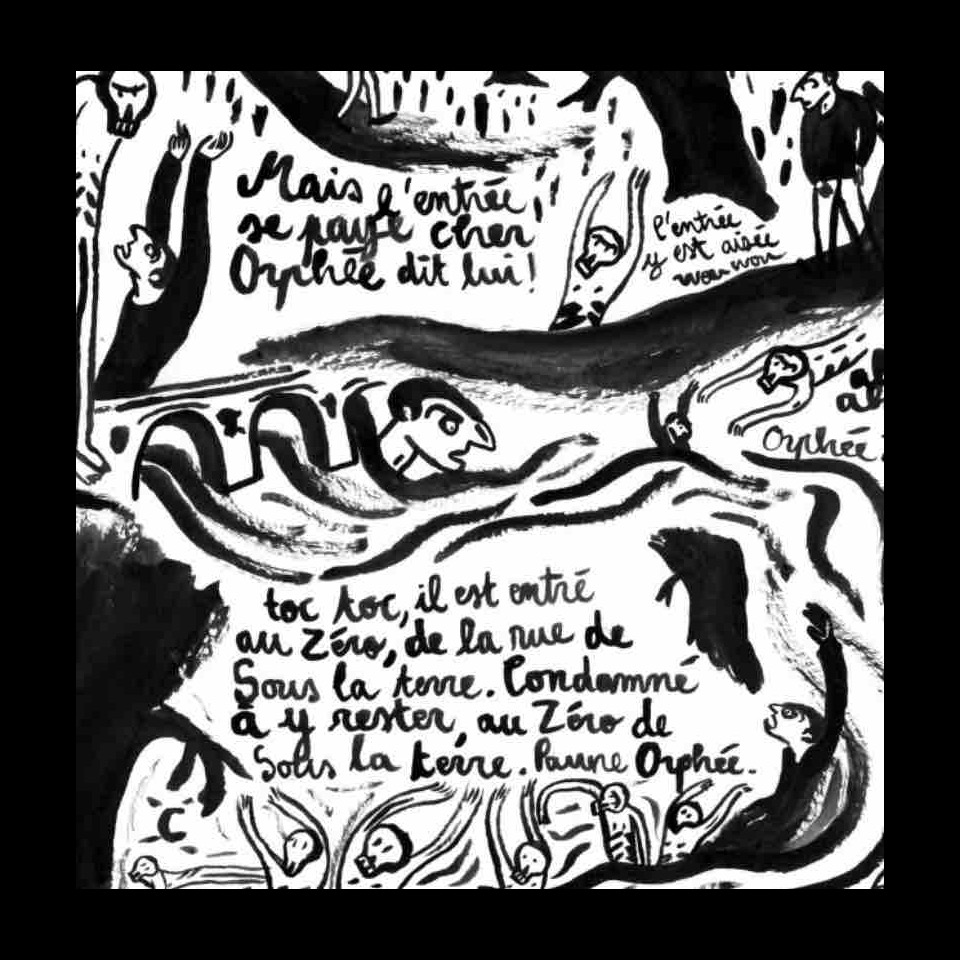 Mais l'entrée,
se paye cher
Orphée dit lui!
l'entrée
y est aisée
wou wou
Orphée
toc toc, il est entré
au Zéro, de la rue de
Sous la terre. Condamné
à y rester, au Zéro de
Sous la terre. Pauvre Orphée.